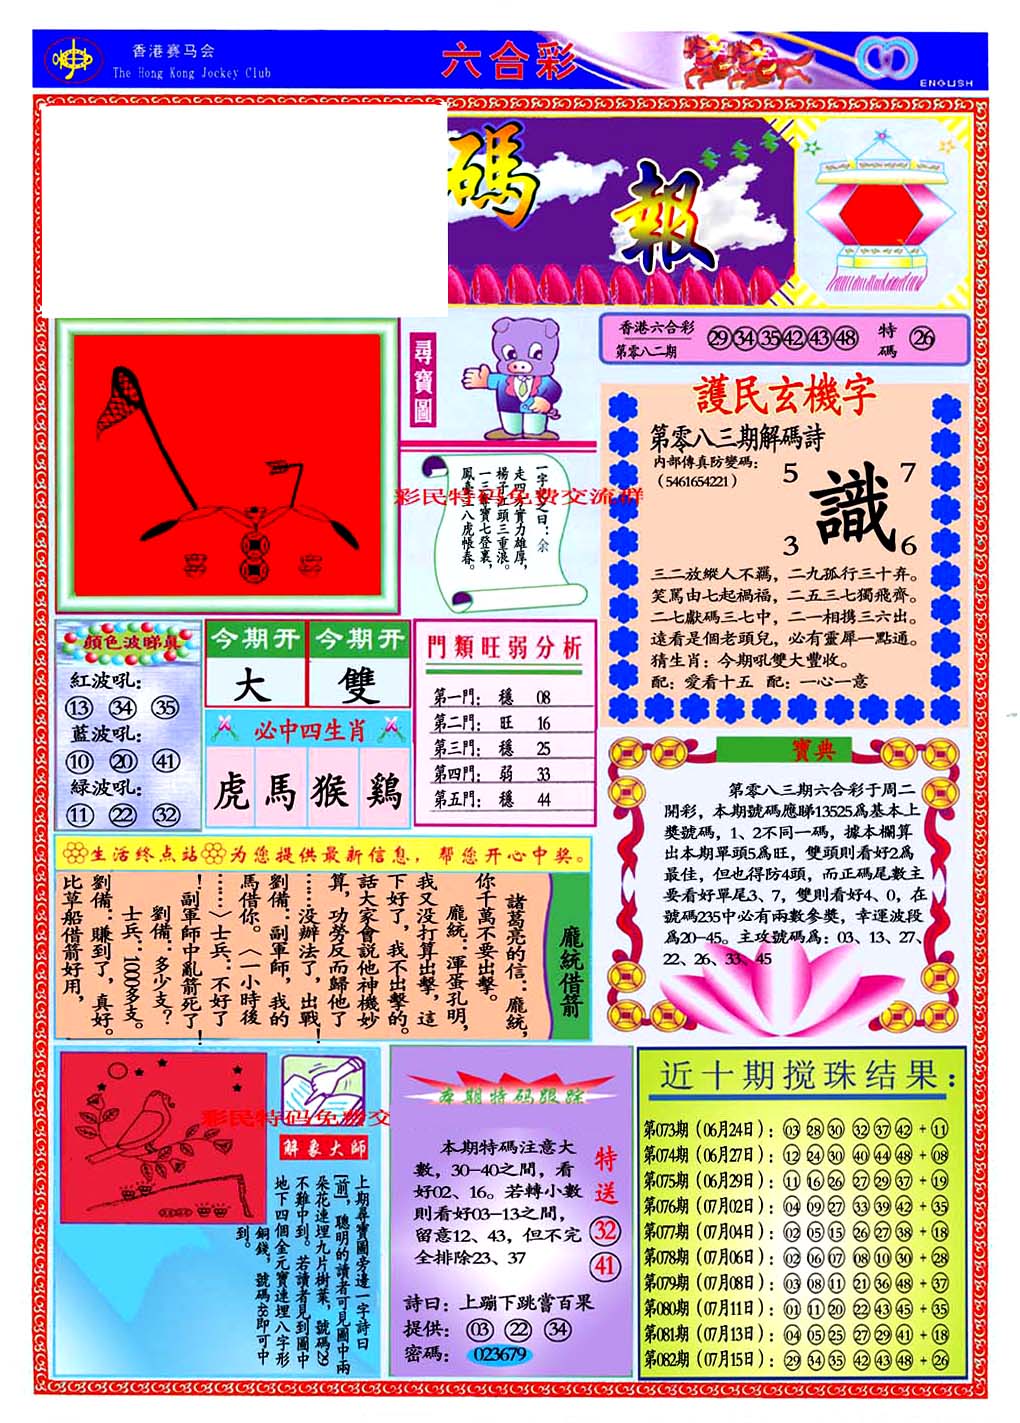 香港赛马会
The Hong Kong Jockey Club
六合彩
ENGLISH
碼 報
香港六合彩
第零八二期
29 34 35 42 43 48 特碼 26
尋寶圖
一字記之曰：余
走四方實力雄厚，
楊子江頭三重浪。
一三尋寶七登裏，
鳳臺二八虎帳春。
彩民特码免费交流群
護民玄機字
第零八三期解碼詩
内部傳真防變碼：
（5461654221）
5 7
識
3 6
三二放縱人不羈，二九孤行三十弃。
笑罵由七起禍福，二五三七獨飛齊。
二七獻碼三七中，二一相携三六出。
遠看是個老頭兒，必有靈犀一點通。
猜生肖：今期吼雙大豐收。
配：愛看十五 配：一心一意
顔色波睇真
紅波吼：
13 34 35
藍波吼：
10 20 41
緑波吼：
11 22 32
今期开 今期开
大 雙
必中四生肖
虎 馬 猴 鷄
門類旺弱分析
第一門： 穩 08
第二門： 旺 16
第三門： 穩 25
第四門： 弱 33
第五門： 穩 44
寶典
第零八三期六合彩于周二
開彩，本期號碼應睇13525爲基本上
獎號碼，1、2不同一碼，據本欄算
出本期單頭5爲旺，雙頭則看好2爲
最佳，但也得防4頭，而正碼尾數主
要看好單尾3、7，雙則看好4、0，在
號碼235中必有兩數參獎，幸運波段
爲20-45。主攻號碼爲：03、13、27、
22、26、33、45
生活终点站 为您提供最新信息，帮您开心中奖。
龐統借箭
諸葛亮的信：龐統，
你千萬不要出擊。
龐統：渾蛋孔明，
我又没打算出擊，這
下好了，我不出擊的。
話大家會說他神機妙
算，功勞反而歸他了
……没辦法了，出戰！
劉備：副軍師，我的
馬借你。〈一小時後
……〉士兵：不好了
！副軍師中亂箭死了！
劉備：多少支？
士兵：1000多支。
劉備：賺到了，真好。
比草船借箭好用，
彩民特码免费交
解象大師
上期尋寶圖旁邊一字詩曰
[前]，聰明的讀者可見圖中兩
朵花連埋九片樹葉，號碼29
不難中到。若讀者見到圖中
地下四個金元寶連埋八字形
銅錢，號碼48即可中
到。
本期特码跟踪
本期特码注意大
數，30-40之間，看
好02、16。若轉小數
則看好03-13之間，
留意12、43，但不完
全排除23、37
特送
32
41
詩曰：上蹦下跳嘗百果
提供： 03 22 34
密碼： 023679
近十期搅珠结果：
第073期（06月24日）：03 28 30 32 37 42 + 11
第074期（06月27日）：12 24 30 40 44 48 + 08
第075期（06月29日）：11 16 26 27 29 37 + 19
第076期（07月02日）：04 09 27 33 39 42 + 35
第077期（07月04日）：02 05 15 26 27 38 + 18
第078期（07月06日）：02 06 07 08 10 30 + 28
第079期（07月08日）：03 08 11 21 36 48 + 37
第080期（07月11日）：01 11 20 22 43 45 + 35
第081期（07月13日）：04 05 25 27 29 41 + 18
第082期（07月15日）：29 34 35 42 43 48 + 26